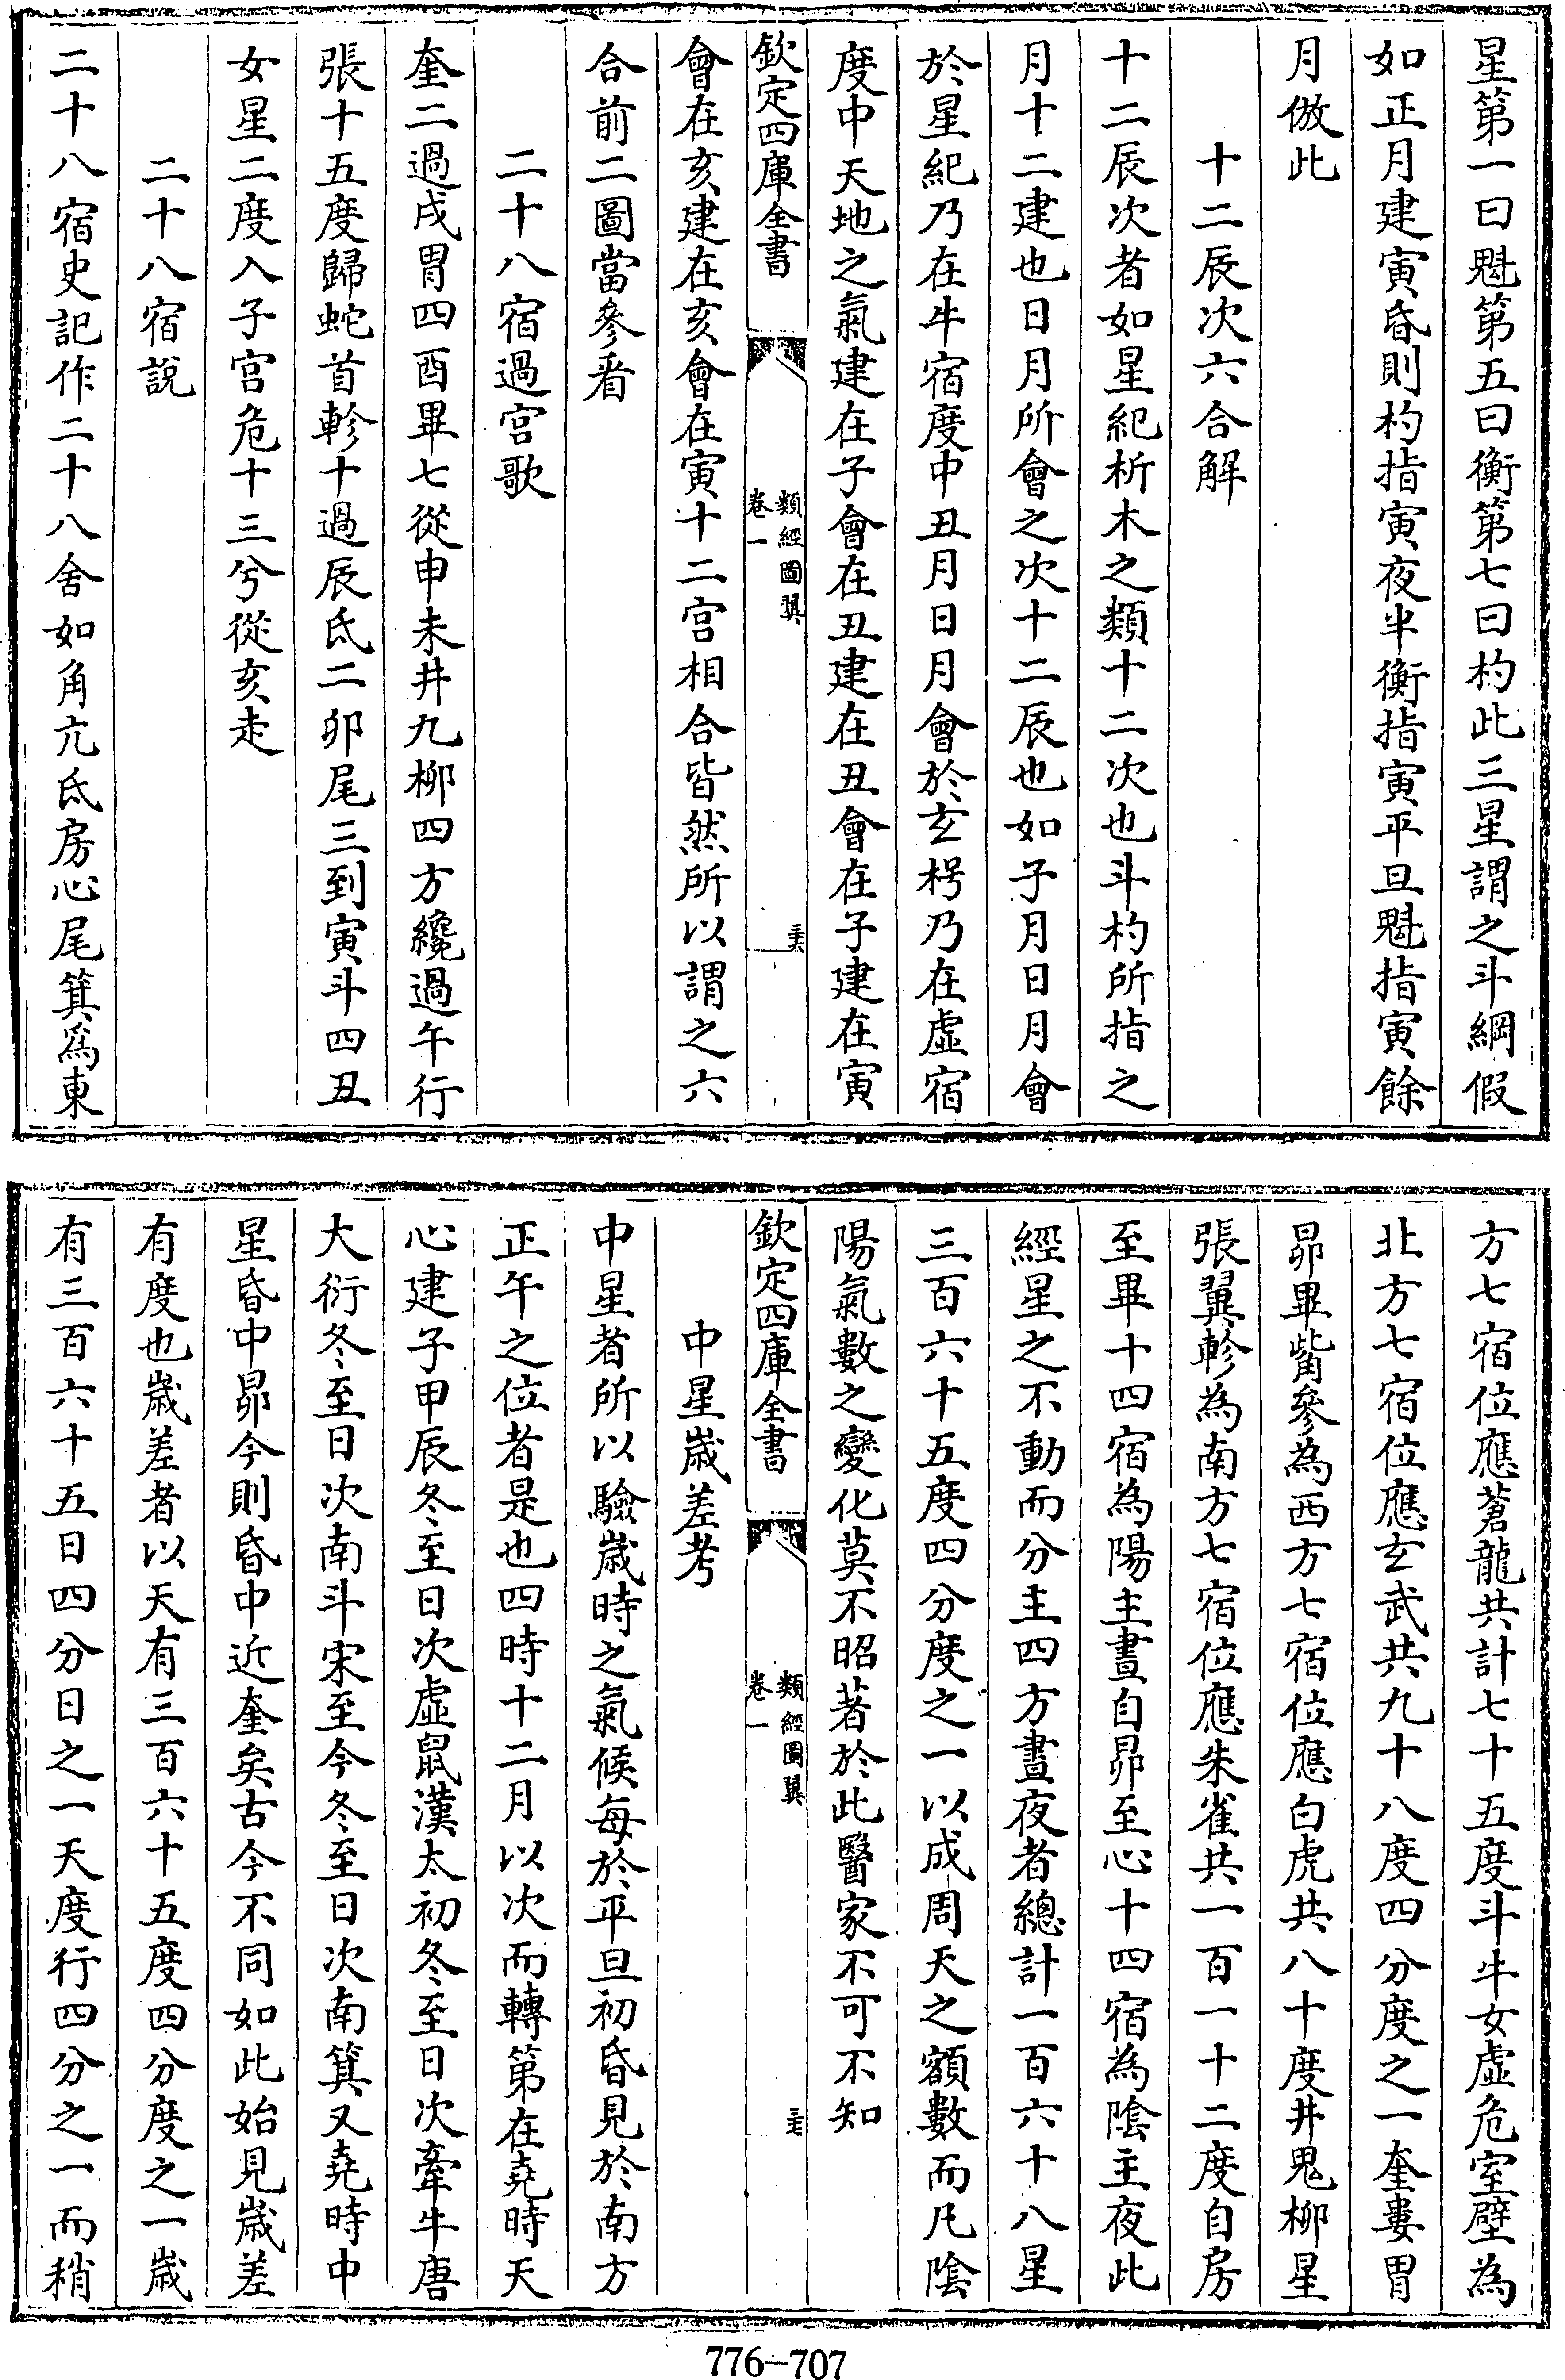 星第一曰魁第五曰衡第七曰杓此三星謂之斗綱假
如正月建寅昏則杓指寅夜半衡指寅平旦魁指寅餘
月倣此
十二辰次六合解
十二辰次者如星紀析木之類十二次也斗杓所指之
月十二建也日月所會之次十二辰也如子月日月會
於星紀乃在牛宿度中丑月日月會於玄枵乃在虛宿
度中天地之氣建在子會在丑建在丑會在子建在寅
欽定四庫全書
類經圖翼
卷一
三六
會在亥建在亥會在寅十二宫相合皆然所以謂之六
合前二圖當參看
二十八宿過宫歌
奎二過戌胃四酉畢七從申未井九柳四方纔過午行
張十五度歸蛇首軫十過辰氐二卯尾三到寅斗四丑
女星二度入子宫危十三兮從亥走
二十八宿說
二十八宿史記作二十八舍如角亢氐房心尾箕爲東
方七宿位應蒼龍共計七十五度斗牛女虛危室壁為
北方七宿位應玄武共九十八度四分度之一奎婁胃
昴畢觜參為西方七宿位應白虎共八十度井鬼柳星
張翼軫為南方七宿位應朱雀共一百一十二度自房
至畢十四宿為陽主晝自昴至心十四宿為陰主夜此
經星之不動而分主四方晝夜者總計一百六十八星
三百六十五度四分度之一以成周天之額數而凡陰
陽氣數之變化莫不昭著於此醫家不可不知
欽定四庫全書
類經圖翼
卷一
三七
中星嵗差考
中星者所以驗嵗時之氣候每於平旦初昏見於南方
正午之位者是也四時十二月以次而轉第在堯時天
心建子甲辰冬至日次虛鼠漢太初冬至日次牽牛唐
大衍冬至日次南斗宋至今冬至日次南箕又堯時中
星昏中昴今則昏中近奎矣古今不同如此始見嵗差
有度也嵗差者以天有三百六十五度四分度之一嵗
有三百六十五日四分日之一天度行四分之一而稍
776-707